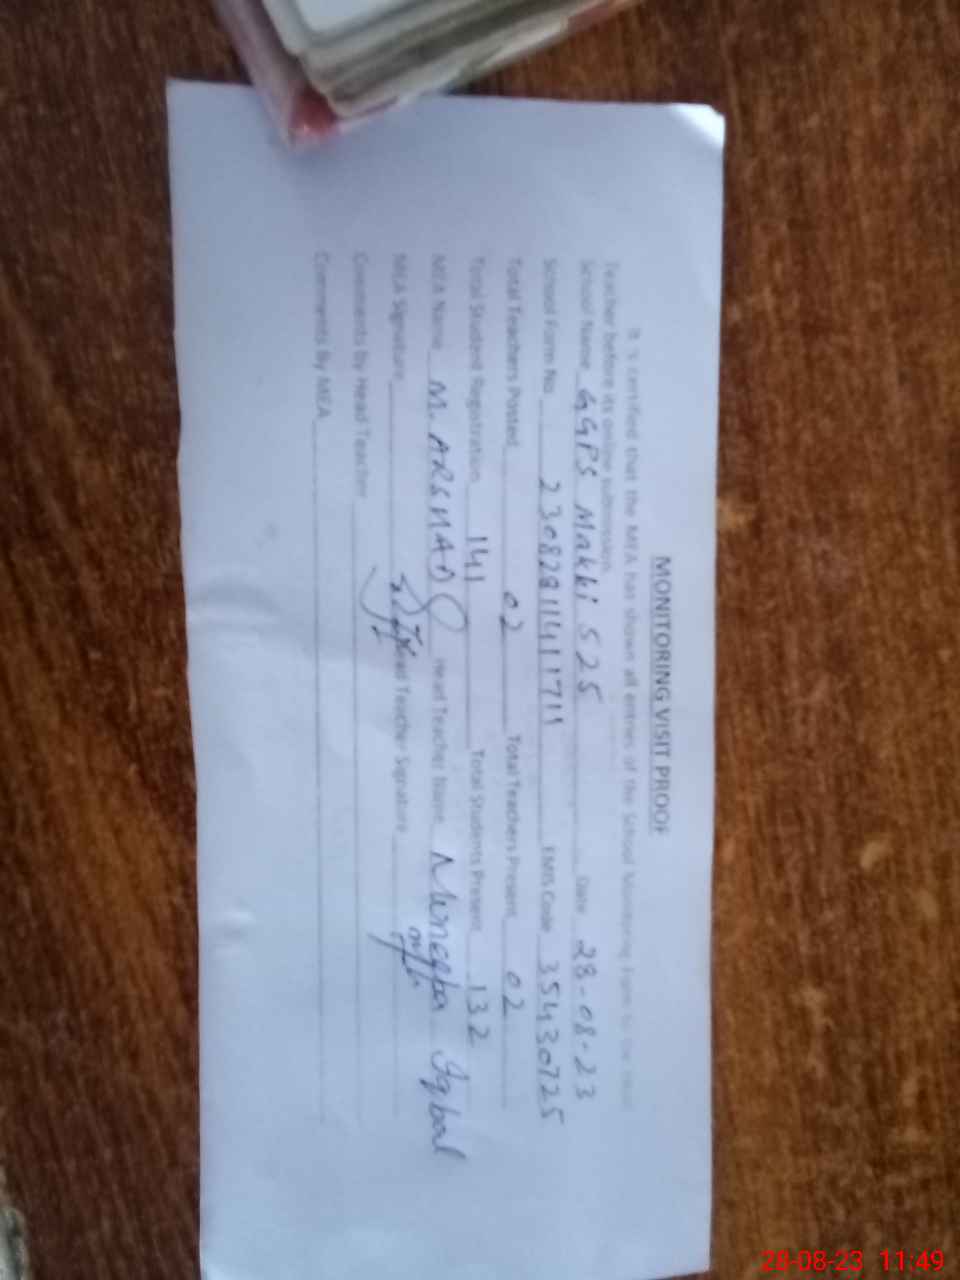 MONITORING VISIT PROOF
It is certified that the MEA has shown all entries of the School Monitoring Form to the Head
Teacher before its online submission.
School Name GGPS Makki 525 Date 28-08-23
School Form No 23082811411711 EMIS Code 35430725
Total Teachers Posted 02 Total Teachers Present 02
Total Student Registration 141 Total Students Present 132
MEA Name M. ARSHAD Head Teacher Name Iqbal
MEA Signature Head Teacher Signature
Comments by Head Teacher
Comments By MEA
28-08-23 11:49